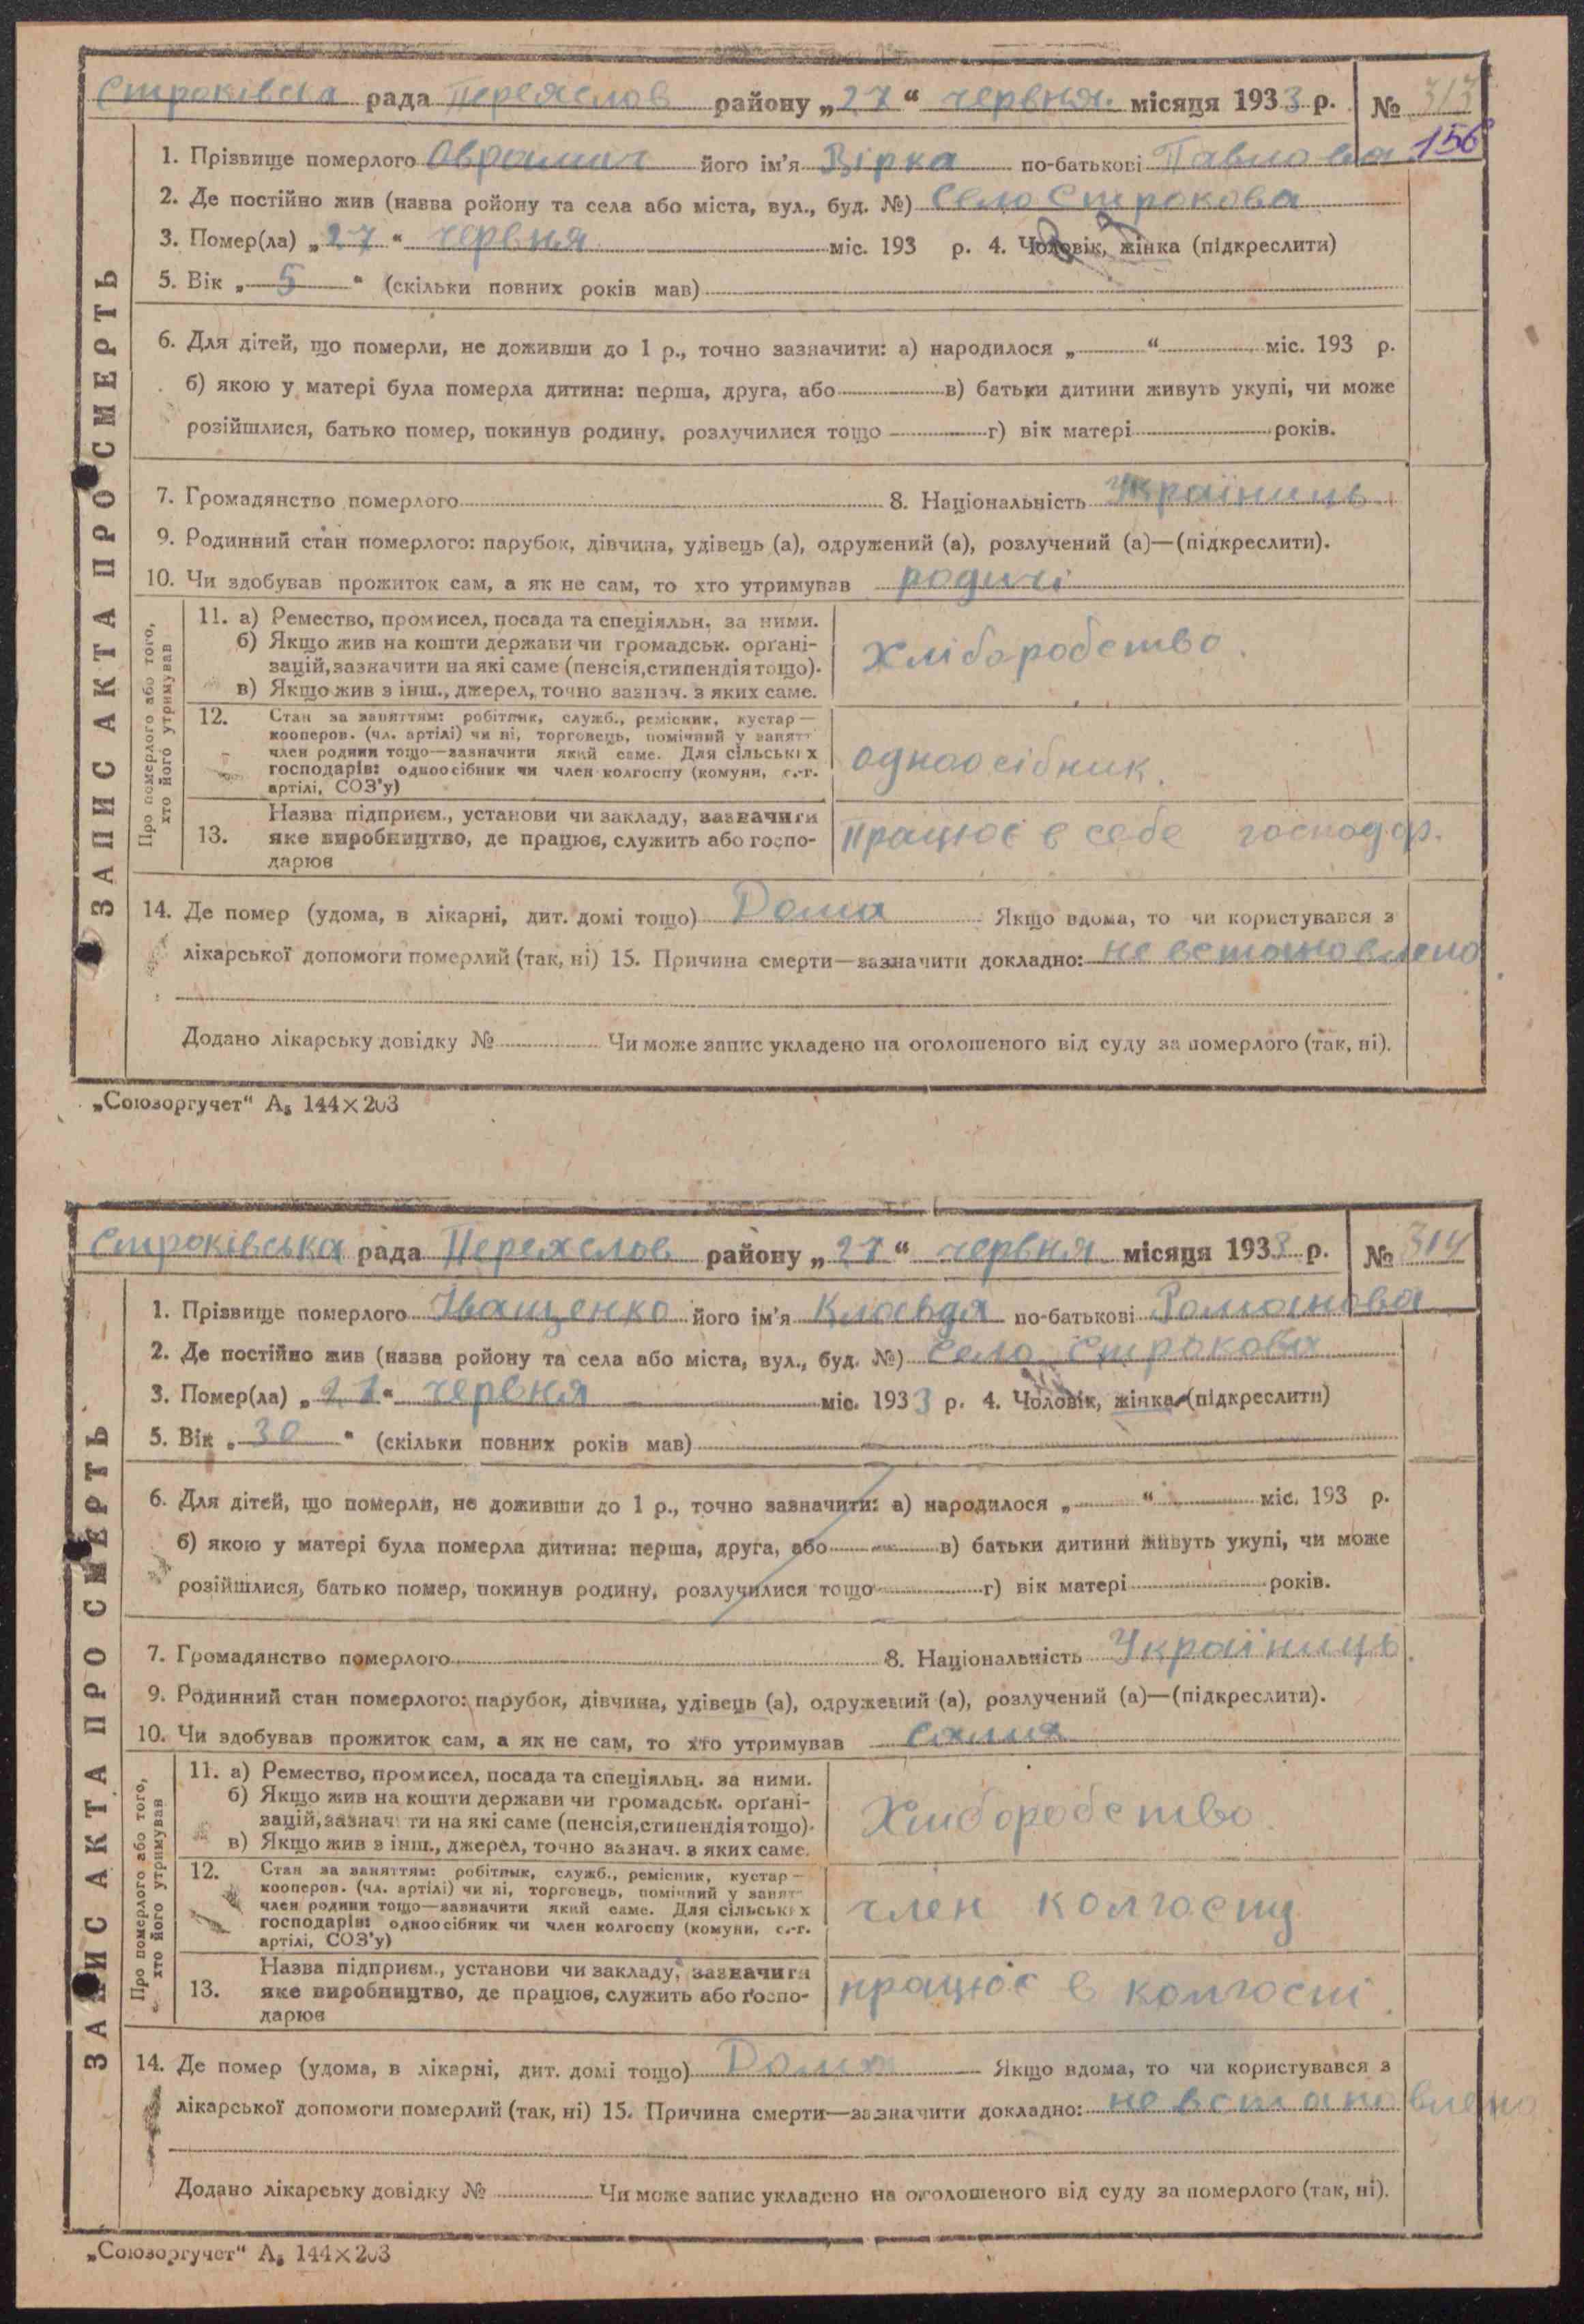 Строківська рада Переяслов району „27“ червня місяця 1933 р. № 313
156
1. Прізвище померлого його ім'я Вірка по-батькові Павлова
2. Де постійно жив (назва ройону та села або міста, вул., буд. №) Село Строкова
3. Помер(ла) „27“ червня міс. 193 р. 4. Чоловік, жінка (підкреслити)
5. Вік „5“ (скільки повних років мав)
6. Для дітей, що померли, не доживши до 1 р., точно зазначити: а) народилося „ “ міс. 193 р.
б) якою у матері була померла дитина: перша, друга, або в) батьки дитини живуть укупі, чи може
розійшлися, батько помер, покинув родину, розлучилися тощо г) вік матері років.
7. Громадянство померлого 8. Національність Українець
9. Родинний стан померлого: парубок, дівчина, удівець (а), одружений (а), розлучений (а)—(підкреслити).
10. Чи здобував прожиток сам, а як не сам, то хто утримував родичі
ЗАПИС АКТА ПРО СМЕРТЬ
Про померлого або того,
хто його утримував
11. а) Ремество, промисел, посада та спеціяльн. за ними.
б) Якщо жив на кошти держави чи громадськ. орґані-
зацій, зазначити на які саме (пенсія, стипендія тощо).
в) Якщо жив з інш., джерел, точно зазнач. з яких саме.
Хліборобство.
12. Стан за заняттям: робітник, служб., ремісник, кустар—
кооперов. (чл. артілі) чи ні, торговець, помічний у занятт
член родини тощо—зазначити який саме. Для сільських
господарів: одноосібник чи член колгоспу (комуни, с.-г.
артілі, СОЗ'у)
одноосібник.
13. Назва підприєм., установи чи закладу, зазначити
яке виробництво, де працює, служить або госпо-
дарює
працює в себе господар.
14. Де помер (удома, в лікарні, дит. домі тощо) Дома Якщо вдома, то чи користувався з
лікарської допомоги померлий (так, ні) 15. Причина смерти—зазначити докладно: не встановлено
Додано лікарську довідку № Чи може запис укладено на оголошеного від суду за померлого (так, ні).
„Союзоргучет“ А₅ 144×203
Строківська рада Переяслов району „27“ червня місяця 1933 р. № 314
1. Прізвище померлого Іващенко його ім'я Клавдя по-батькові Романова
2. Де постійно жив (назва ройону та села або міста, вул., буд. №) Село Строкова
3. Помер(ла) „27“ червня міс. 1933 р. 4. Чоловік, жінка (підкреслити)
5. Вік „30“ (скільки повних років мав)
6. Для дітей, що померли, не доживши до 1 р., точно зазначити: а) народилося „ “ міс. 193 р.
б) якою у матері була померла дитина: перша, друга, або в) батьки дитини живуть укупі, чи може
розійшлися, батько помер, покинув родину, розлучилися тощо г) вік матері років.
7. Громадянство померлого 8. Національність Українець
9. Родинний стан померлого: парубок, дівчина, удівець (а), одружений (а), розлучений (а)—(підкреслити).
10. Чи здобував прожиток сам, а як не сам, то хто утримував сама
ЗАПИС АКТА ПРО СМЕРТЬ
Про померлого або того,
хто його утримував
11. а) Ремество, промисел, посада та спеціяльн. за ними.
б) Якщо жив на кошти держави чи громадськ. орґані-
зацій, зазначити на які саме (пенсія, стипендія тощо).
в) Якщо жив з інш., джерел, точно зазнач. з яких саме.
Хліборобство.
12. Стан за заняттям: робітник, служб., ремісник, кустар—
кооперов. (чл. артілі) чи ні, торговець, помічний у занят
член родини тощо—зазначити який саме. Для сільських
господарів: одноосібник чи член колгоспу (комуни, с.-г.
артілі, СОЗ'у)
член колгоспу
13. Назва підприєм., установи чи закладу, зазначити
яке виробництво, де працює, служить або госпо-
дарює
працює в колгоспі.
14. Де помер (удома, в лікарні, дит. домі тощо) Дома Якщо вдома, то чи користувався з
лікарської допомоги померлий (так, ні) 15. Причина смерти—зазначити докладно: не встановлено
Додано лікарську довідку № Чи може запис укладено на оголошеного від суду за померлого (так, ні).
„Союзоргучет“ А₅ 144×203